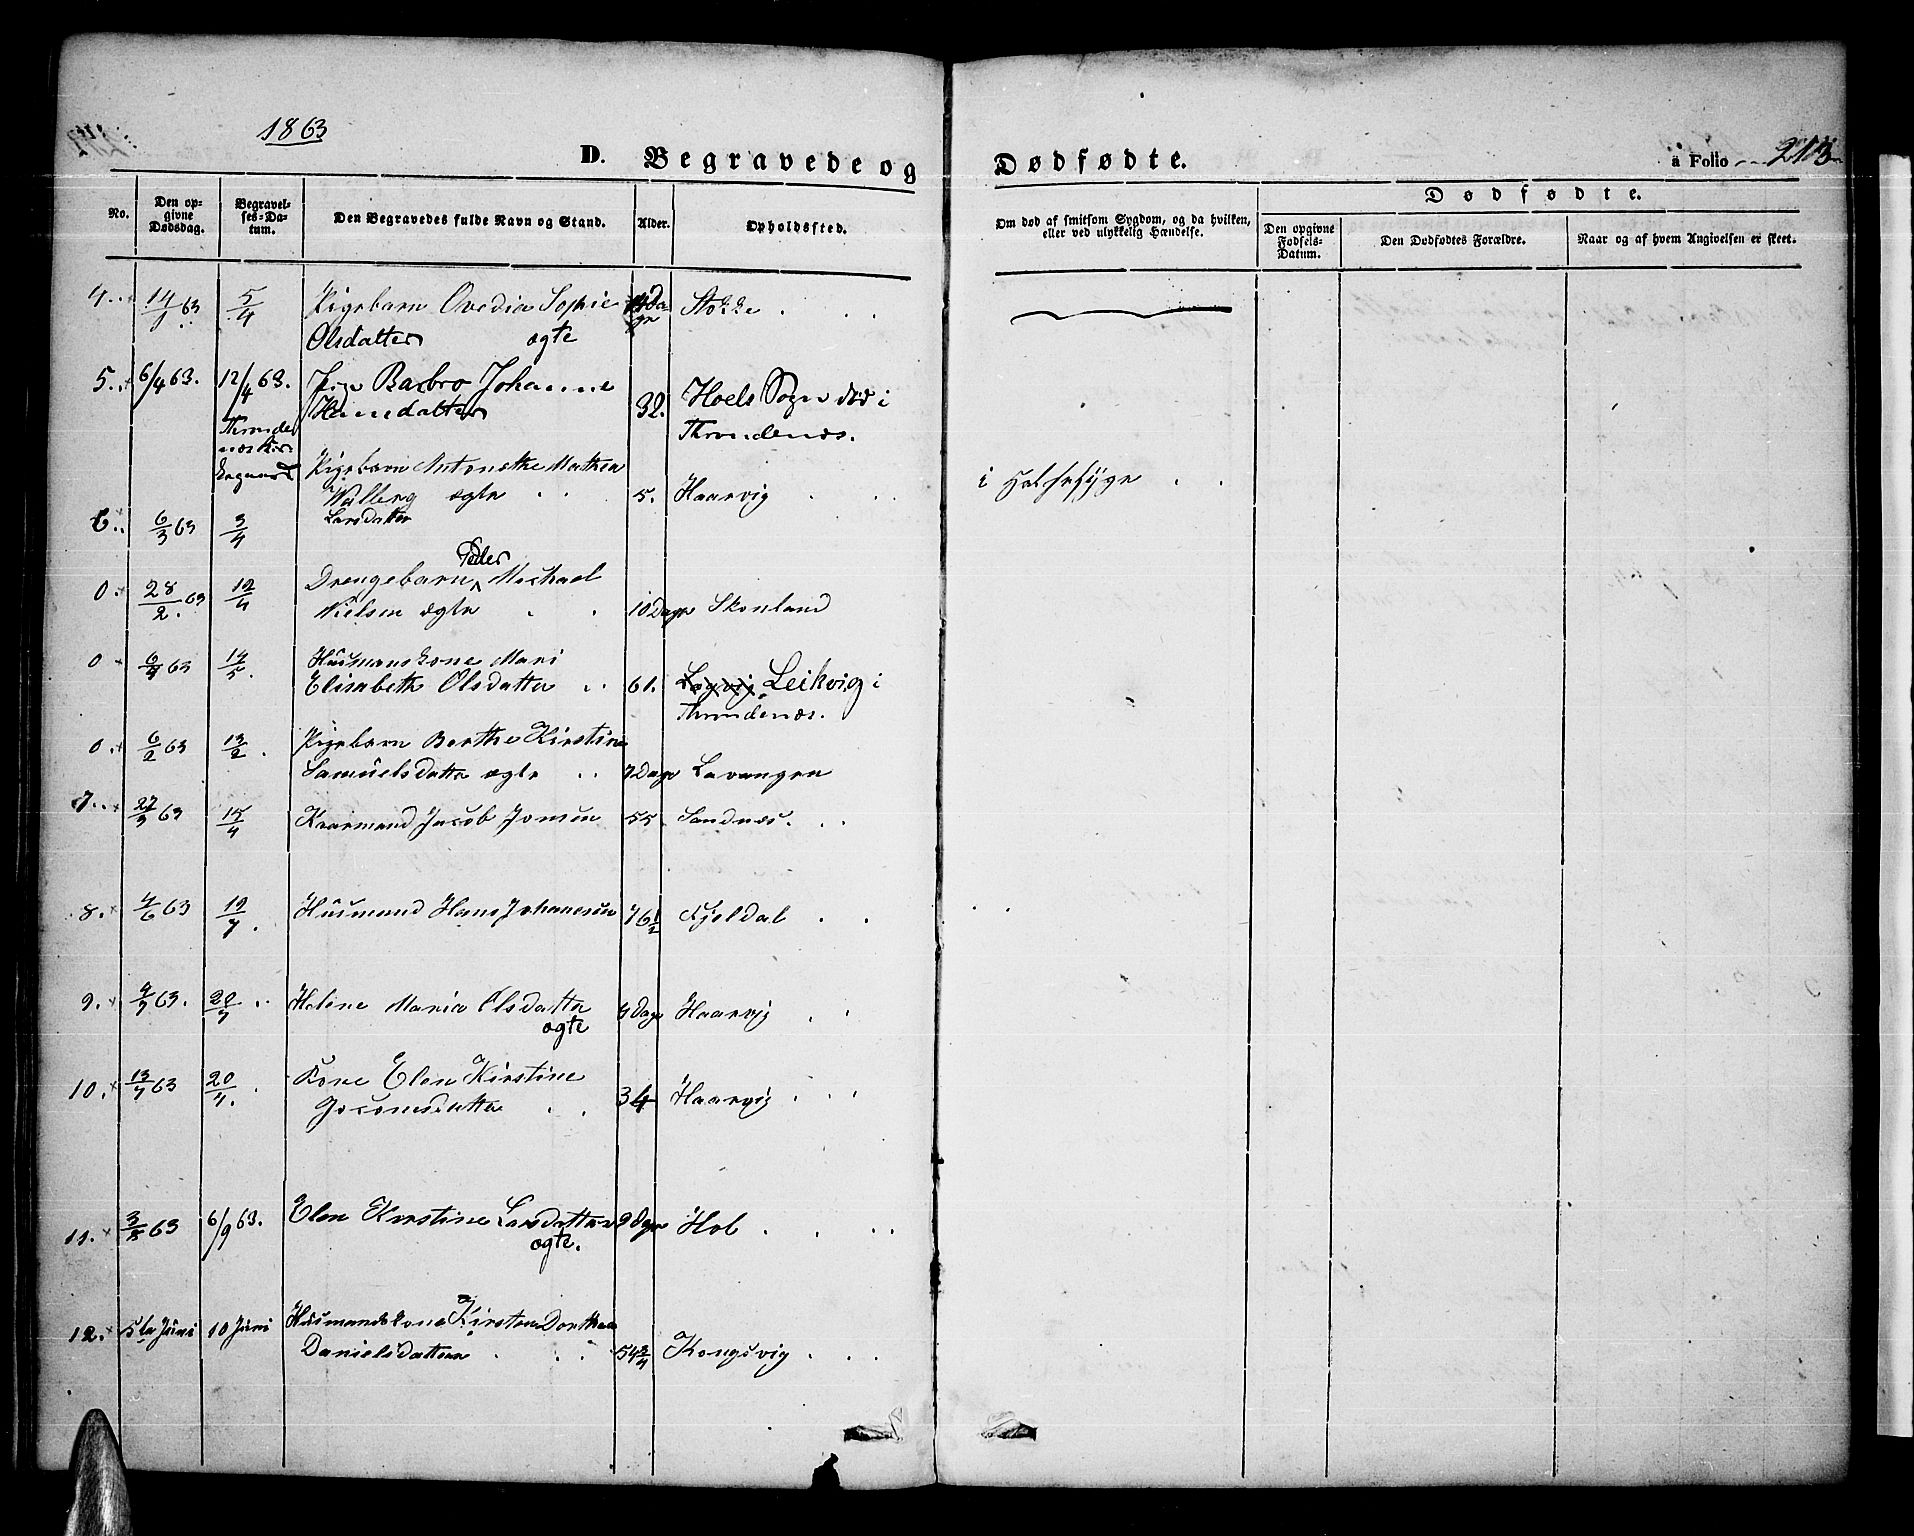 1863
D. Begravede og Dødfødte.
à Folio 213
No.
Den opgivne Dødsdag.
Begravelses-Datum.
Den Begravedes fulde Navn og Stand.
Alder.
Opholdssted.
Om død af smitsom Sygdom, og da hvilken, eller ved ulykkelig Hændelse.
Dødfødte.
Den opgivne Fødsels-Datum.
Den Dødfødtes Forældre.
Naar og af hvem Angivelsen er skeet.
4. 14/ 63 5/4 Pigebarn Ovedia Sophie
Olsdatter ægte
5. 6/4 63. 12/4 63. Pige Barbro Johanne
32. Hoels Sogn død i
Throndenæs.
Pigebarn Antonethe Mathea
Walberg ægte 5. Haarvig i Halssyge
6. 6/3 63 3/4 Larsdatter
Peder
0. 28/2. 63 12/4 Drengebarn Michael
Nielsen ægte 10 Dage Skonland
0 6/4 63 14/5. Huusmandskone Mari
Elisabeth Olsdatter 61. Leikvig i
Throndenæs.
0. 6/2 63 13/2. Pigebarn Berthe Kirstine
Samuelsdatter ægte 7 Dage Lavangen
7. 27/3 63 15/4 Kaarmand Jacob Jonsen 55 Sandnæs.
8. 4/6 63 19/7. Huusmand Hans Johannesen 76 1/2 Fjeldal
9. 9/7 63. 20/7 Heline Maria Olsdatter
ægte Dage Haarvig
10. 13/7 63 20/7. Kone Elen Kirstine
34 Haarvig
11. 3/8 63 6/9 63. Elen Kirstine Larsdatter 9 Dage Hol
ægte.
12. 5te Juni 10 Juni Huusmandskone Kirsten Dorthea
Danielsdatter 54 3/4 Kongsvig